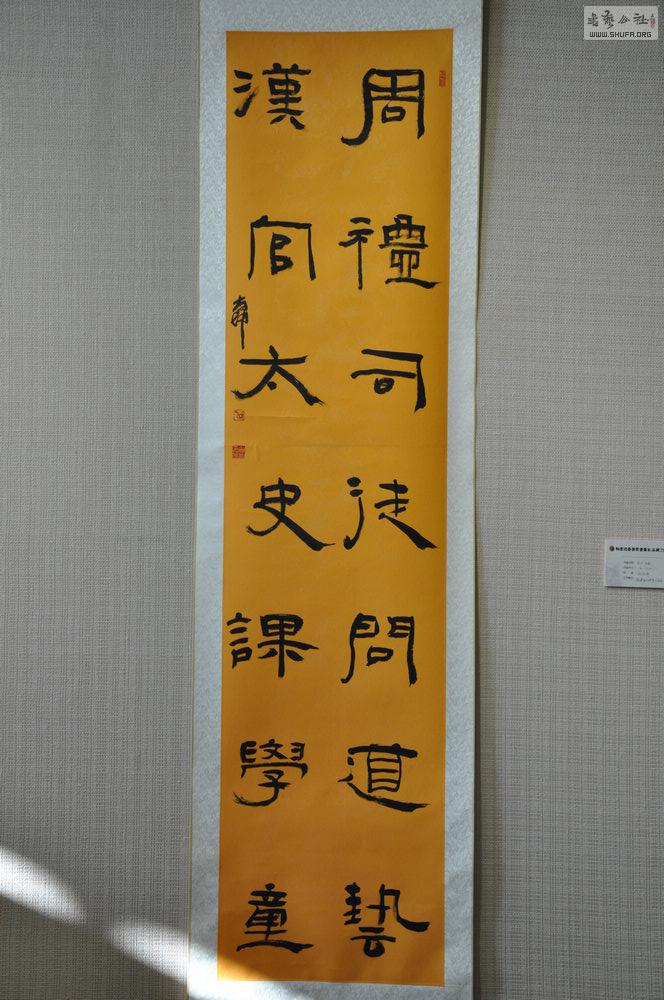 周禮司徒問道藝
漢官太史課學童
书艺公社
WWW.SHUFA.ORG